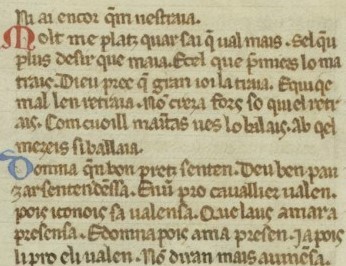 Ni ai encor q̃m uestraia.
Molt me platz quar sai q̃ ual mais. Sel q̃u
plus desir que maia. Etel que p̃meis lo ma
trais. Dieu prec q̃ gran ioi la traia. Equi qe
mal len retraia. Nõ creza
so quiel retr
ais. Com cueill
ues lo balais. ab qel
mezeis si ballaia.
Domna q̃n bon pretz senten. Deu ben pau
zar sentendessa. Enũ pro cauallier ualen.
pois iconois sa ualensa. Que laus amara
presensa. Edomna pois ama presen. Ia pois
li pro eli ualen. Nõ diran mais